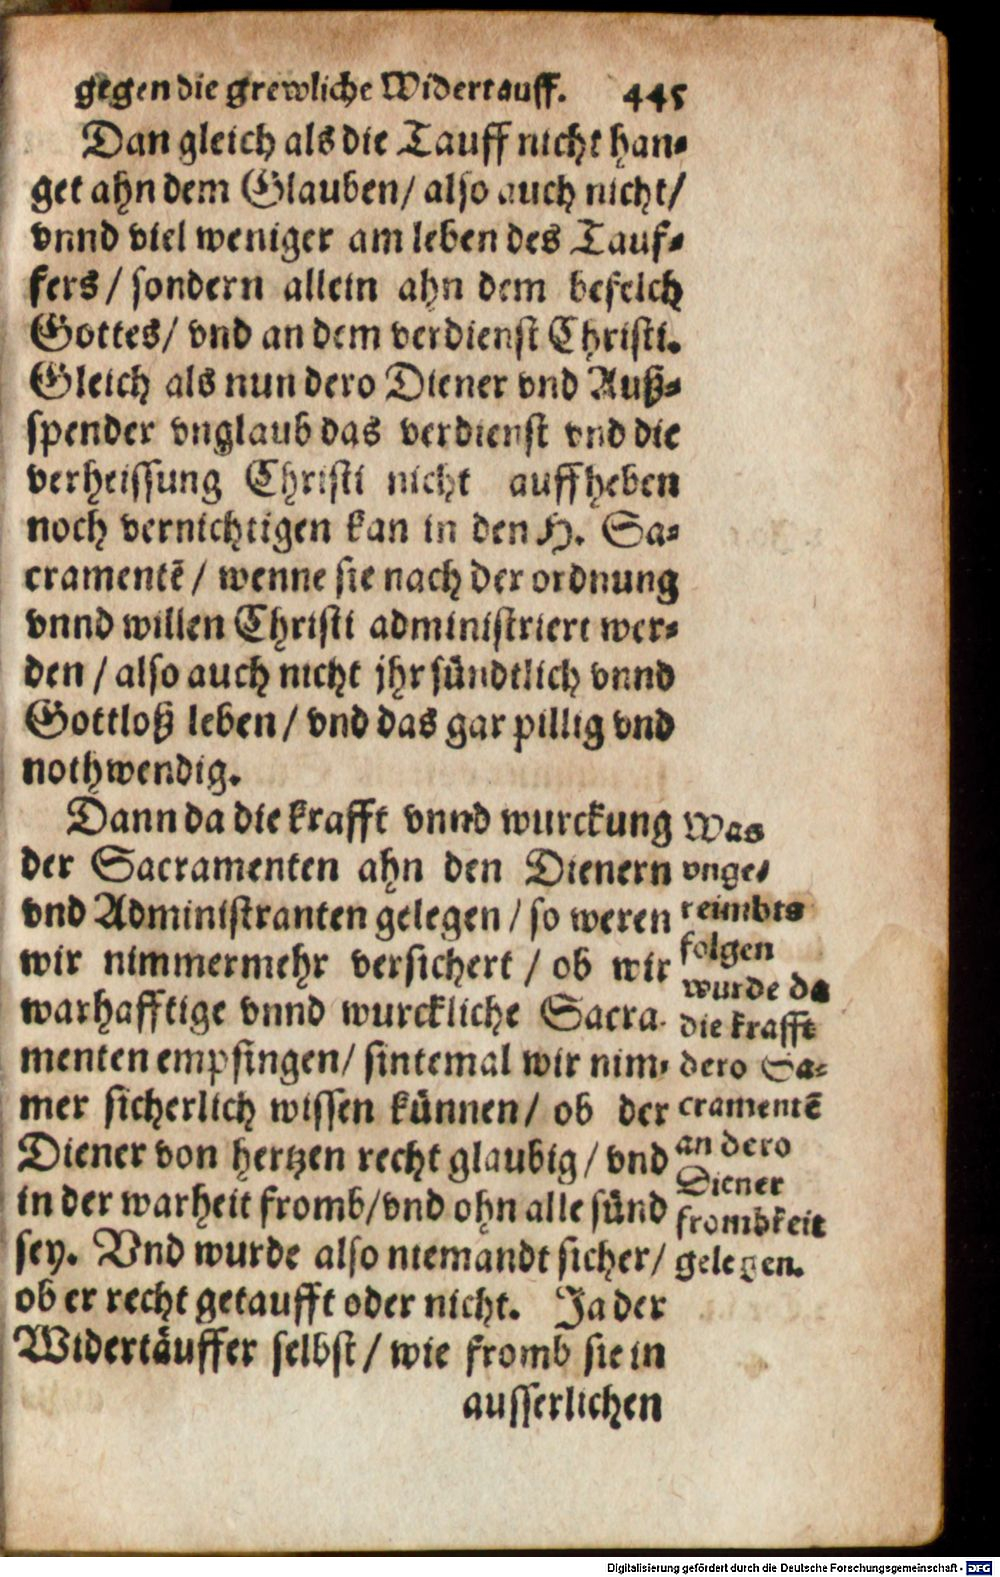 gegen die grewliche Widertauff. 445
Dan gleich als die Tauff nicht han-
get ahn dem Glauben/ also auch nicht/
vnnd viel weniger am leben des Tauf-
fers / sondern allein ahn dem befelch
Gottes/ vnd an dem verdienst Christi.
Gleich als nun dero Diener vnd Auß-
spender vnglaub das verdienst vnd die
verheissung Christi nicht auffheben
noch vernichtigen kan in den H. Sa-
cramentē / wenne sie nach der ordnung
vnnd willen Christi administriert wer-
den / also auch nicht jhr sündtlich vnnd
Gottloß leben / vnd das gar pillig vnd
nothwendig.
Dann da die krafft vnnd wurckung
der Sacramenten ahn den Dienern
vnd Administranten gelegen / so weren
wir nimmermehr versichert / ob wir
warhafftige vnnd wurckliche Sacra-
menten empfingen/ sintemal wir nim-
mer sicherlich wissen künnen/ ob der
Diener von hertzen recht glaubig / vnd
in der warheit fromb/vnd ohn alle sünd
sey. Vnd wurde also niemandt sicher/
ob er recht getaufft oder nicht. Ja der
Widertäuffer selbst / wie fromb sie in
ausserlichen
Was
vnge-
reimbts
folgen
wurde da
die krafft
dero Sa-
cramentē
an dero
Diener
frombkeit
gelegen.
Digitalisierung gefördert durch die Deutsche Forschungsgemeinschaft - DFG